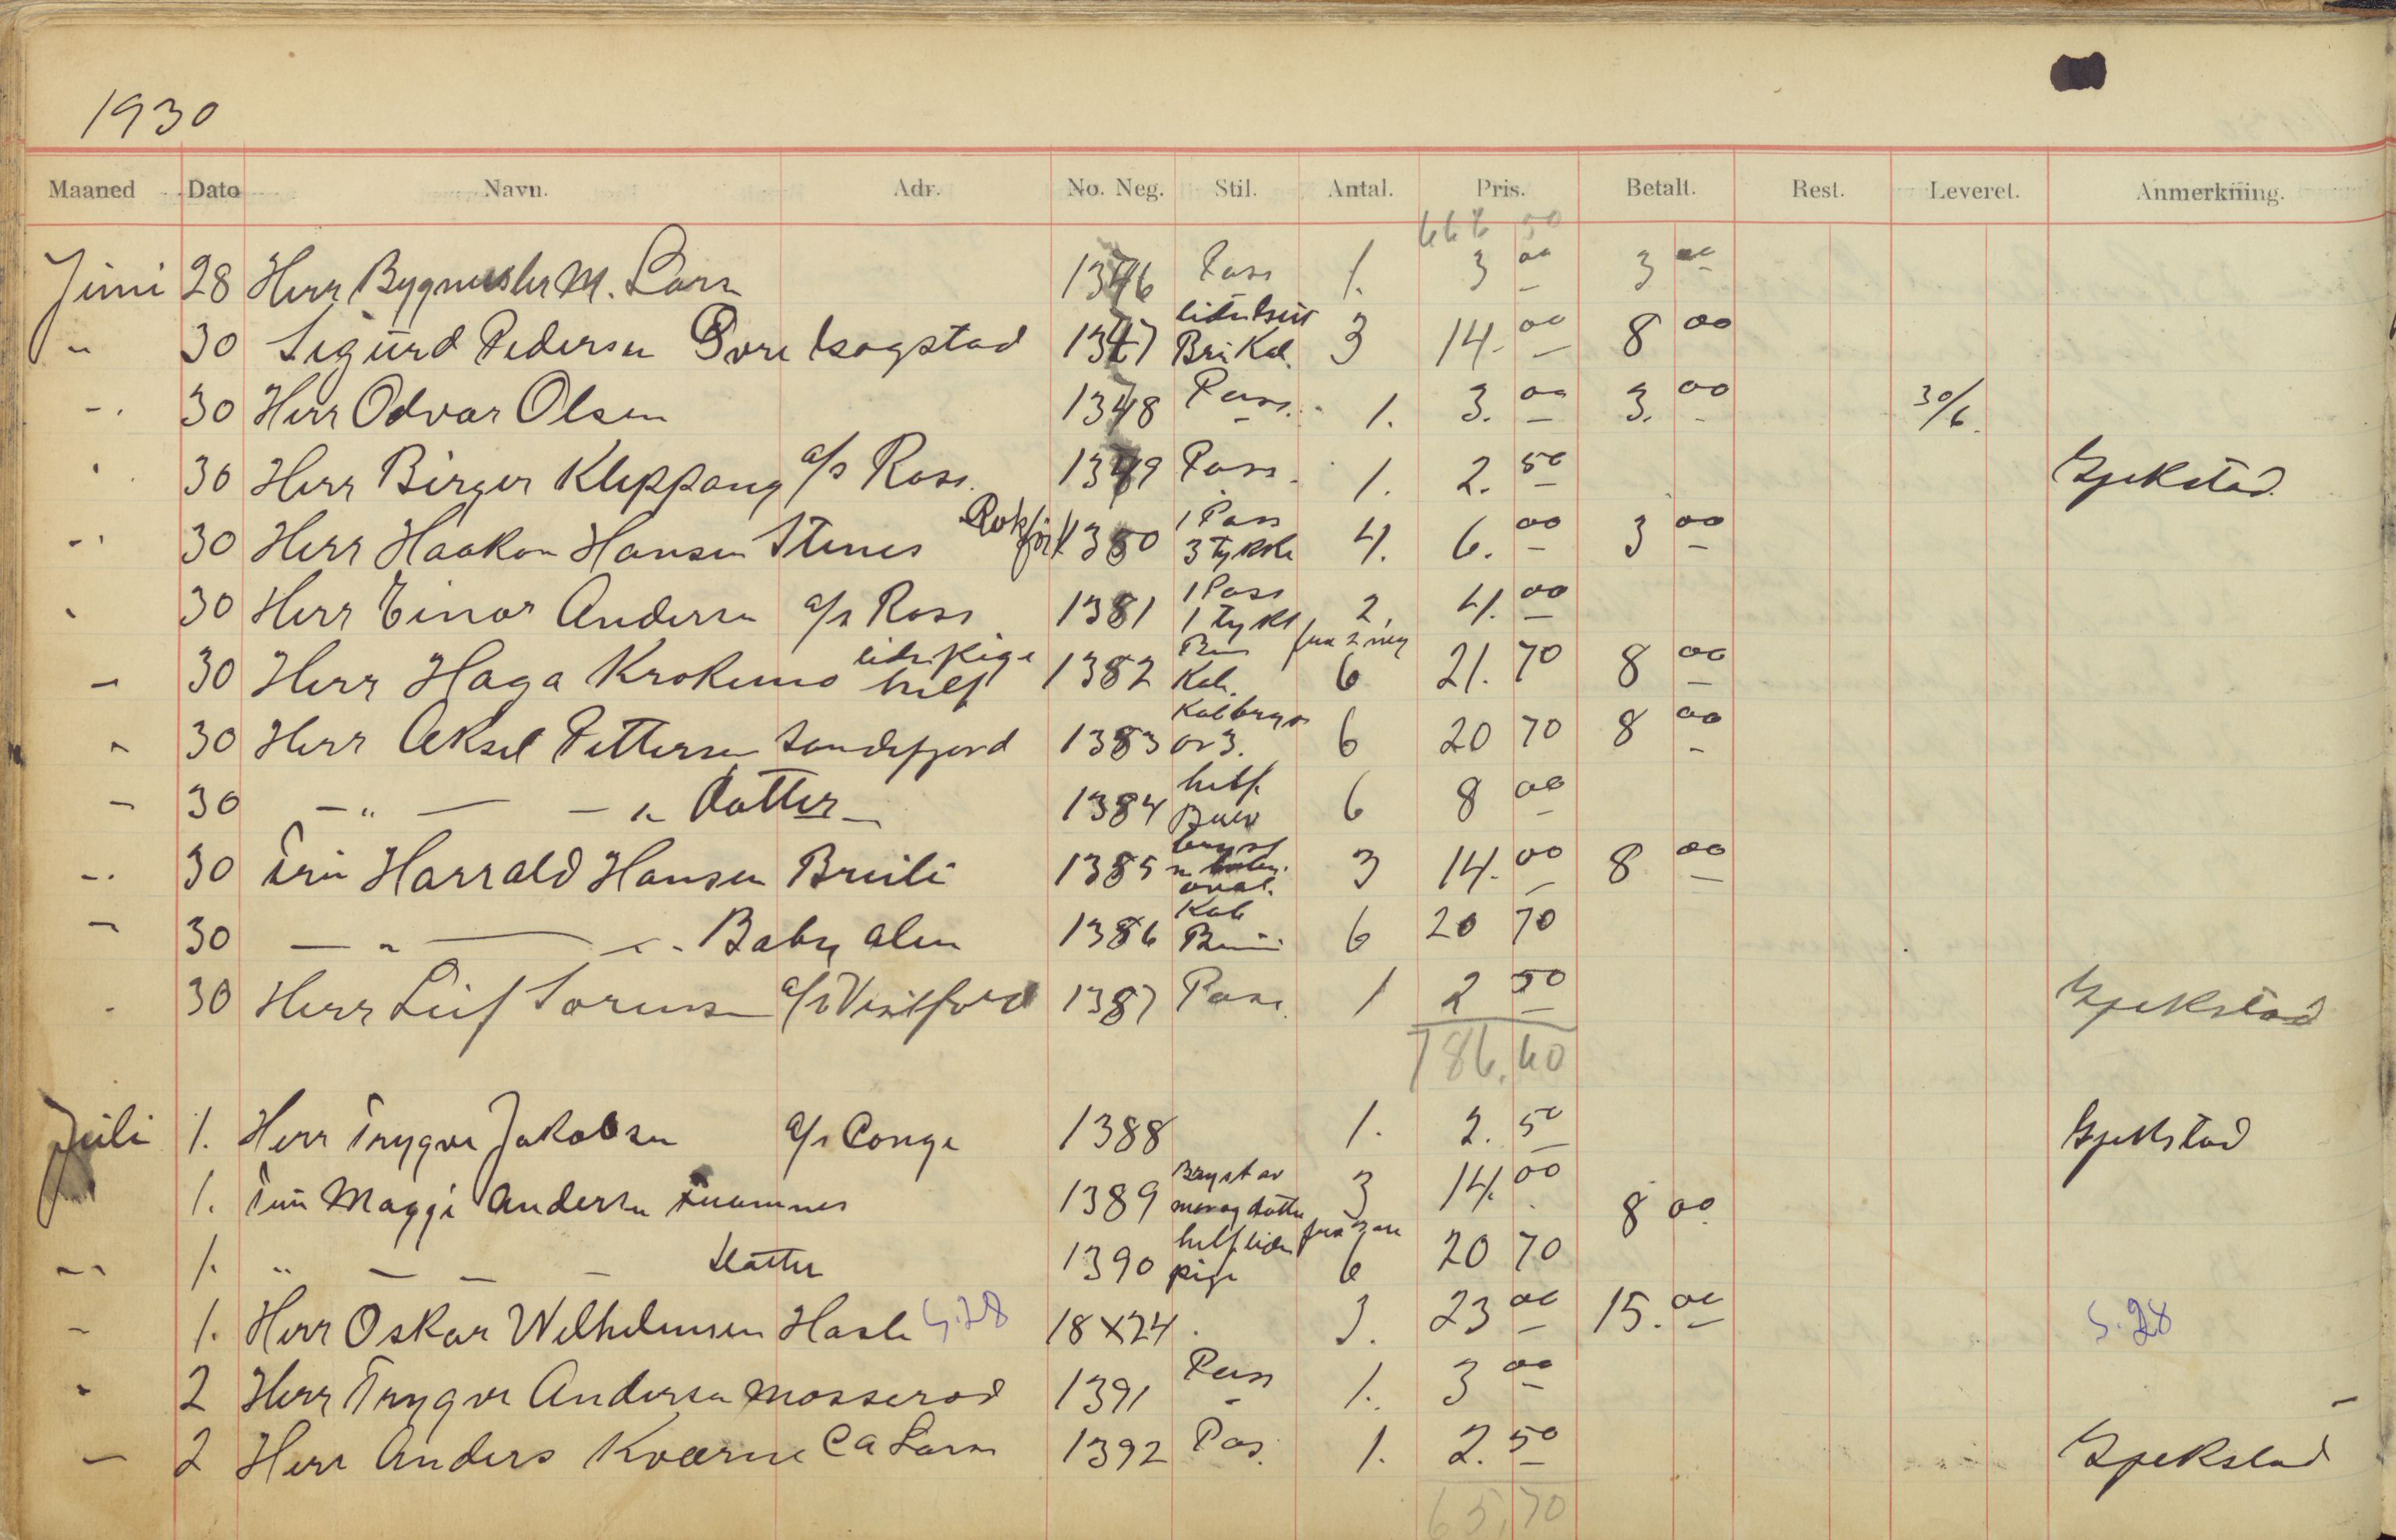 1930
Maaned Dato Navn. Adr. No. Neg. Stil. Antal. Pris. Betalt. Rest. Leveret. Anmerkning.
666 50
Juni 28 Herr Bygmester M. Lars 1376 Pass 1. 3 00 3 00
" 30 Sigurd Pedersen Øvre Haogstad 1377 Bri Kab. 3 14.00 8 00
-. 30 Herr Odvar Olsen 1378 Pass. 1. 3.00 3.00 30/6.
30 Herr Birger Kleppang a/s Ross. 1379 Pass. 1. 2.50 Gjekstad.
-" 30 Herr Haakon Hansen Stenes 1380 1 Pass 3 tykke 4. 6.00 3 00
30 Herr Einar Andersen a/s Ross 1381 1 Pass 1 tykt 2. 4.00
- 30 Herr Haga Krokemo helf 1382 Kab. fra 2 neg 6 21.70 8 00
" 30 Herr Aksel Pettersen Sandefjord 1383 Kab bryst av 3. 6 20 70 8 00
- 30 - " - - " Datter 1384 helf. 6 8 00
-. 30 Fru Harrald Hansen Breili 1385 bryst oval. 3 14.00 8 00
- 30 - " - " - Baby alen 1386 Kab 6 20 70
30 Herr Leif Sorensen a/s Vestfold 1387 Pass. 1 2 50 Gjekstad
786,60
Juli 1. Herr Trygve Jakobsen a/s Conge 1388 1. 2.50 Gjekstad
1. Fru Maggi Andersen Framnes 1389 Bryst av mor og datter 3 14.00 8 00
-- 1. " - - - Datter 1390 helf liden pige 6 20 70
- 1. Herr Oskar Wilhelmsen Hasle S.28 18x24. 3. 23 00 15.00 S. 28
" 2 Herr Trygve Andersen Mosserod 1391 Pass 1. 3 00
- 2 Herr Anders Kværne C A Larsen 1392 Pas. 1. 2.50 Gjekstad
65,70